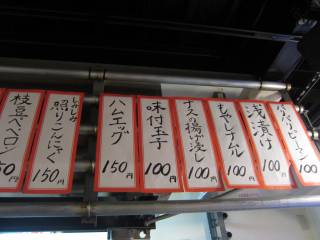 枝豆ペペロン
50
じゅみしみ
照りこんにゃく
150円
ハムエッグ
150円
味付玉子
100円
ナスの揚げ浸し
100円
もやしナムル
100円
浅漬け
100円
パリパリピーマン
100円